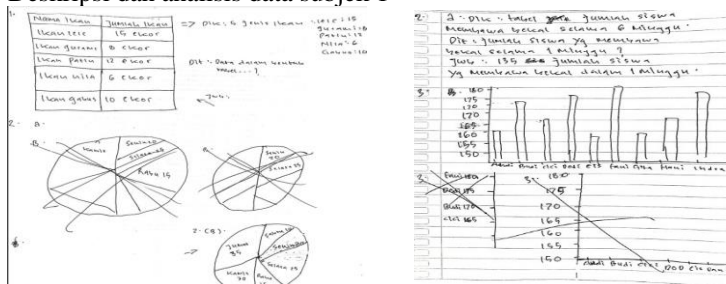 Deskripsi dan analisis data subjek 1
1.
Nama Ikan Jumlah Ikan
Ikan lele 15 ekor
Ikan gurami 8 ekor
Ikan Patin 12 ekor
Ikan nila 6 ekor
Ikan gabus 10 ekor
=> Dik : 5 jenis Ikan : lele : 15
Gurami : 8
Patin : 12
Nila : 6
Gabus : 10
Dit : Data dalam bentuk
tabel...?
Jwb :
2. A.
B.
Kamis
Senin 20
Selasa 25
Rabu 15
Senin
20
Selasa 25
2. (B).
Jumat
35
Senin
Selasa 25
Kamis
Rabu
15
2. a. Dik : tabel jumlah siswa
membawa bekal selama 6 minggu.
Dit : Jumlah siswa yg membawa
bekal selama 1 minggu ?
Jwb : 135 jumlah siswa
yg membawa bekal dalam 1 minggu.
3.
180
175
170
165
160
155
150
Andi Budi Cici Dedi Eti Fani Gina Hani Indra
3.
Fani 180
Dedi 175
Budi 170
Cici 165
3.
180
175
170
165
160
155
150
Andi Budi Cici